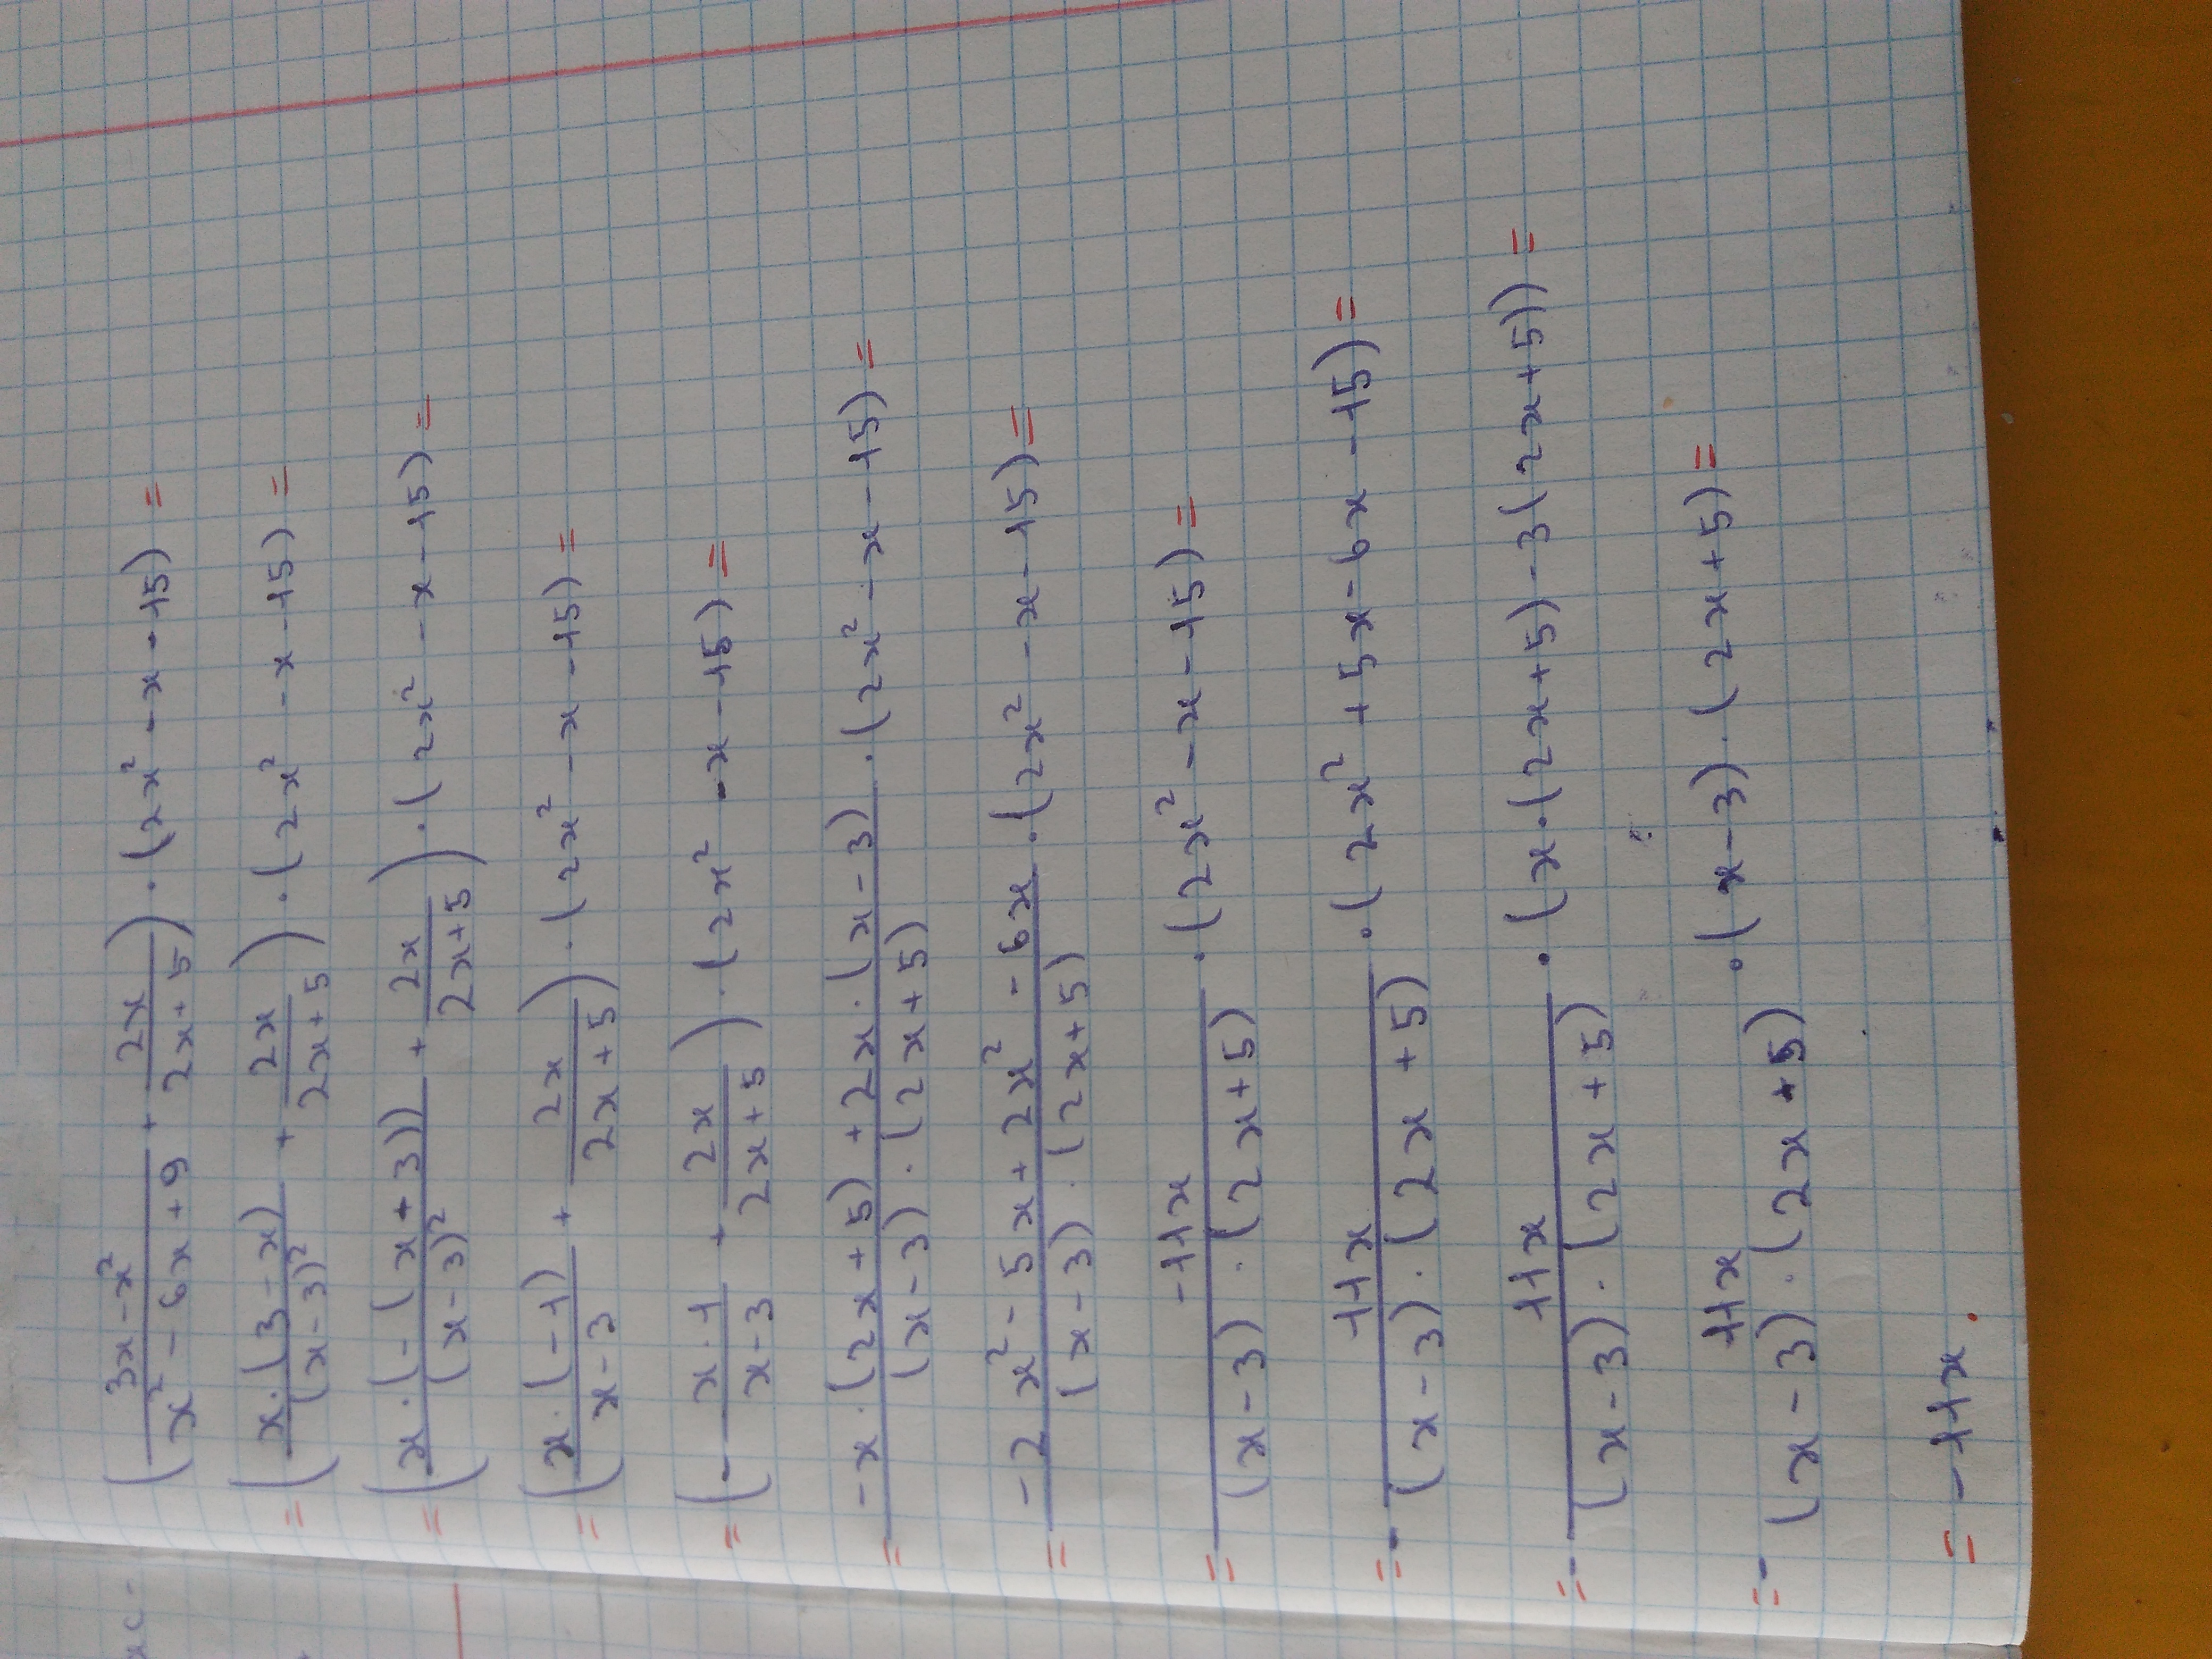 (3x-x²/x²-6x+9 + 2x/2x+5)·(2x²-x-15)=
=(x·(3-x)/(x-3)² + 2x/2x+5)·(2x²-x-15)=
=(x·(-(x+3))/(x-3)² + 2x/2x+5)·(2x²-x-15)=
=(x·(-1)/x-3 + 2x/2x+5)·(2x²-x-15)=
=(-x·1/x-3 + 2x/2x+5)·(2x²-x-15)=
=-x·(2x+5)+2x·(x-3)/(x-3)·(2x+5)·(2x²-x-15)=
=-2x²-5x+2x²-6x/(x-3)·(2x+5)·(2x²-x-15)=
=-11x/(x-3)·(2x+5)·(2x²-x-15)=
=-11x/(x-3)·(2x+5)·(2x²+5x-6x-15)=
=-11x/(x-3)·(2x+5)·(x·(2x+5)-3(2x+5))=
=-11x/(x-3)·(2x+5)·(x-3)·(2x+5)=
=-11x.